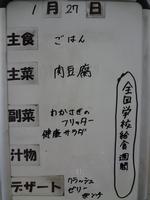 1月27日
主食 ごはん
主菜 肉豆腐
副菜 わかさぎの
フリッター
健康サラダ
汁物
デザート クラッシュ
ゼリー
ポンチ
全国学校給食週間